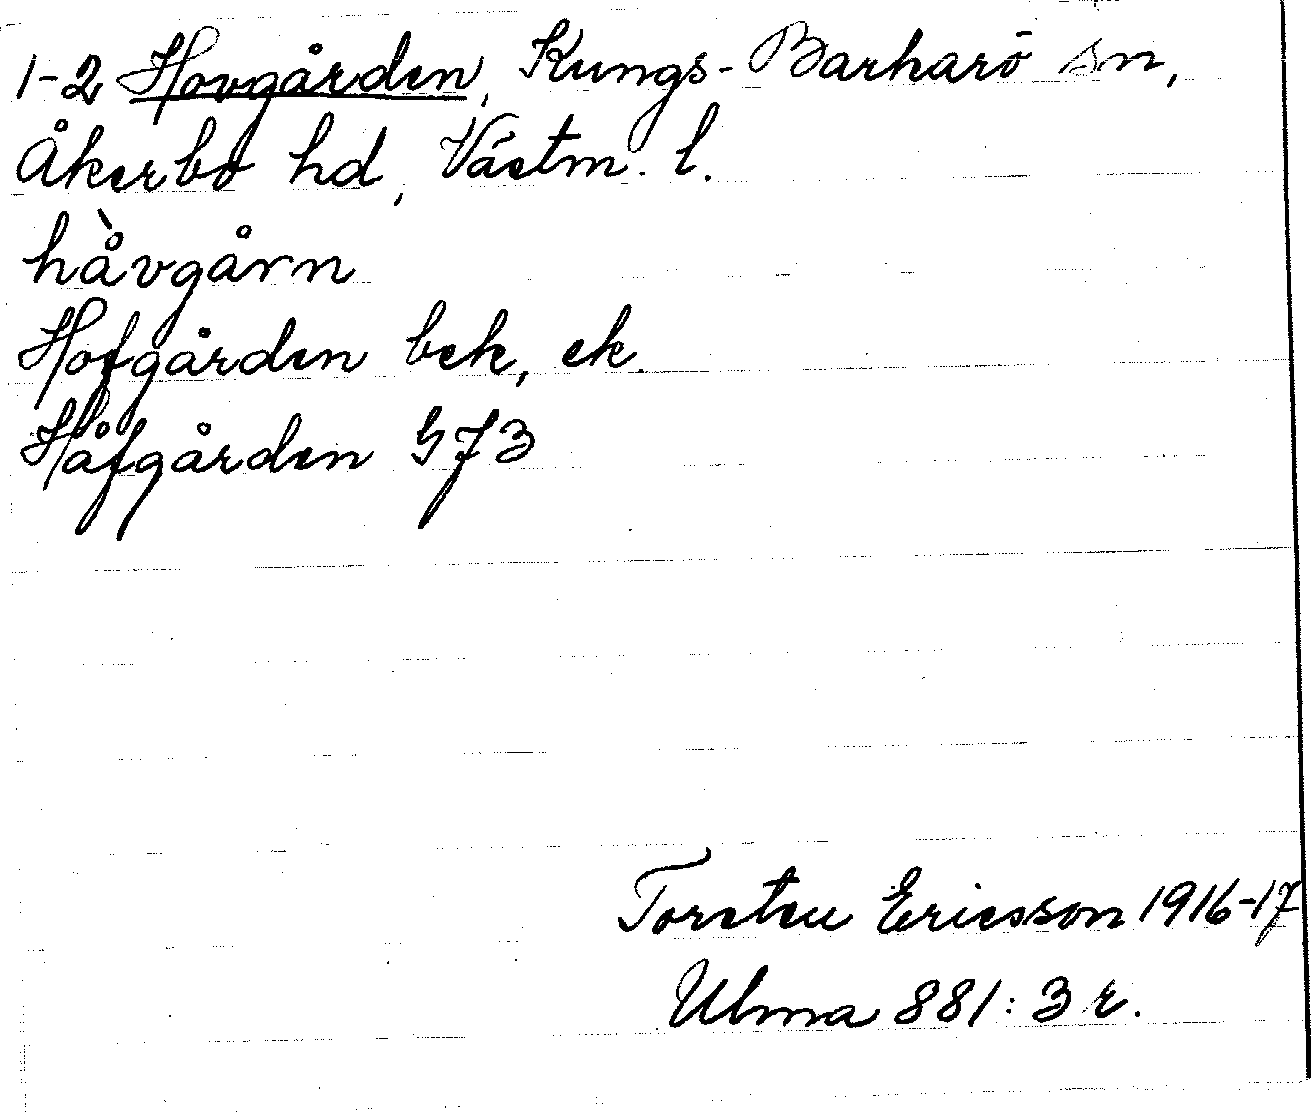 1-2 Hovgården, Kungs-Barkarö sn,
Åkerbo hd, Västm. l.
hå̀vgårn
Hofgården bek, ek.
Håfgården G73
Torsten Ericsson 1916-17
Ulma 881:3 r.